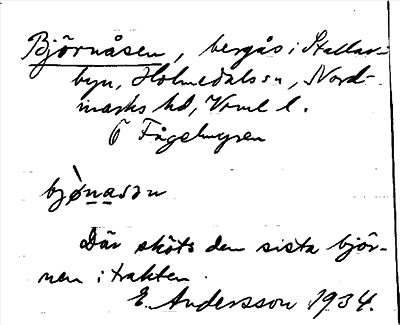 Björnåsen, bergås i Stallar-
byn, Holmedals sn, Nord-
marks hd, Vrml l.
Ö Fågelmyren
bjø̀nasən
Där sköts den sista björ-
nen i trakten.
E. Andersson 1934.